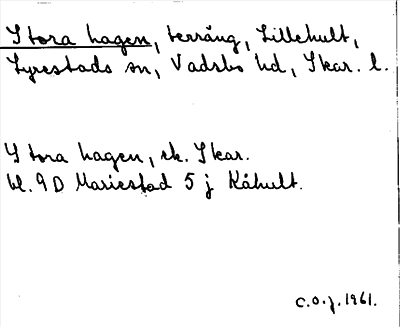 Stora hagen, terräng, Lillehult,
Lyrestads sn, Vadsbo hd, Skar. l.
Stora hagen, ek. Skar.
bl. 9 D Mariestad 5 j Kåhult.
C.O.J. 1961.